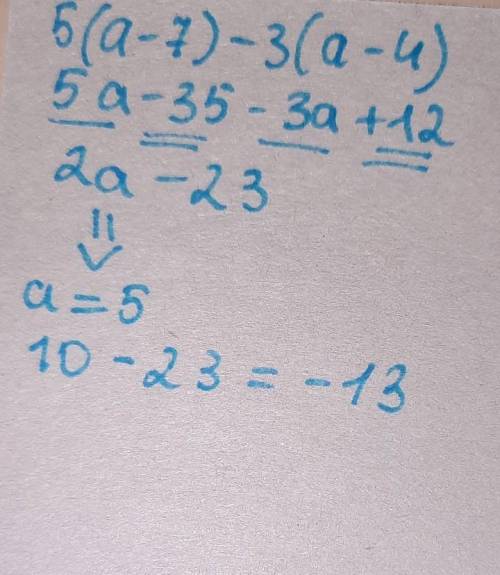 5(a-7)-3(a-4)
5a-35-3a+12
2a-23
⇓
a=5
10-23=-13